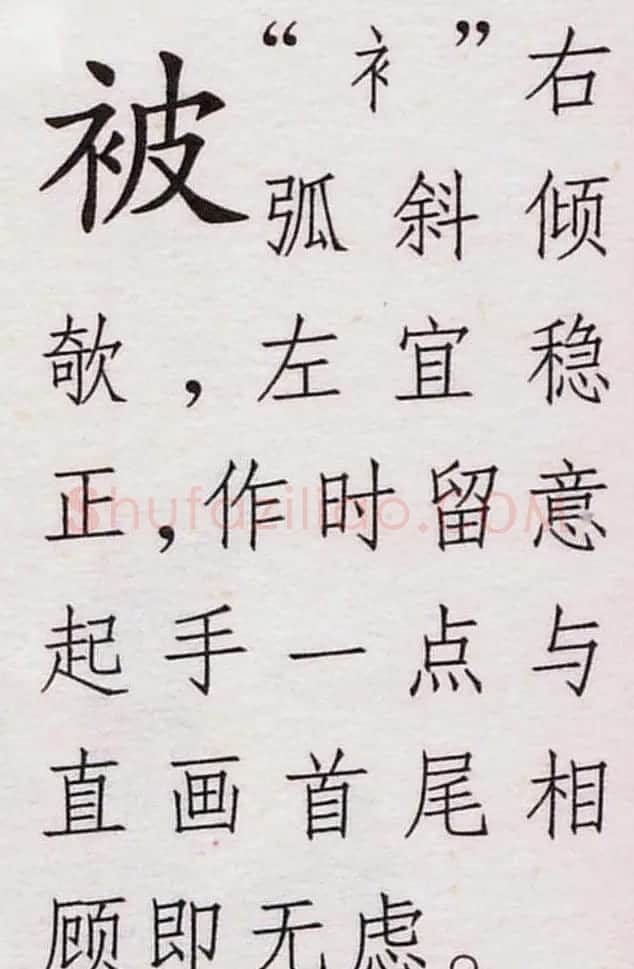 被 “衤”右
弧斜倾
欹，左宜稳
正，作时留意
起手一点与
直画首尾相
顾即无虑。
Shufaziliao.COM